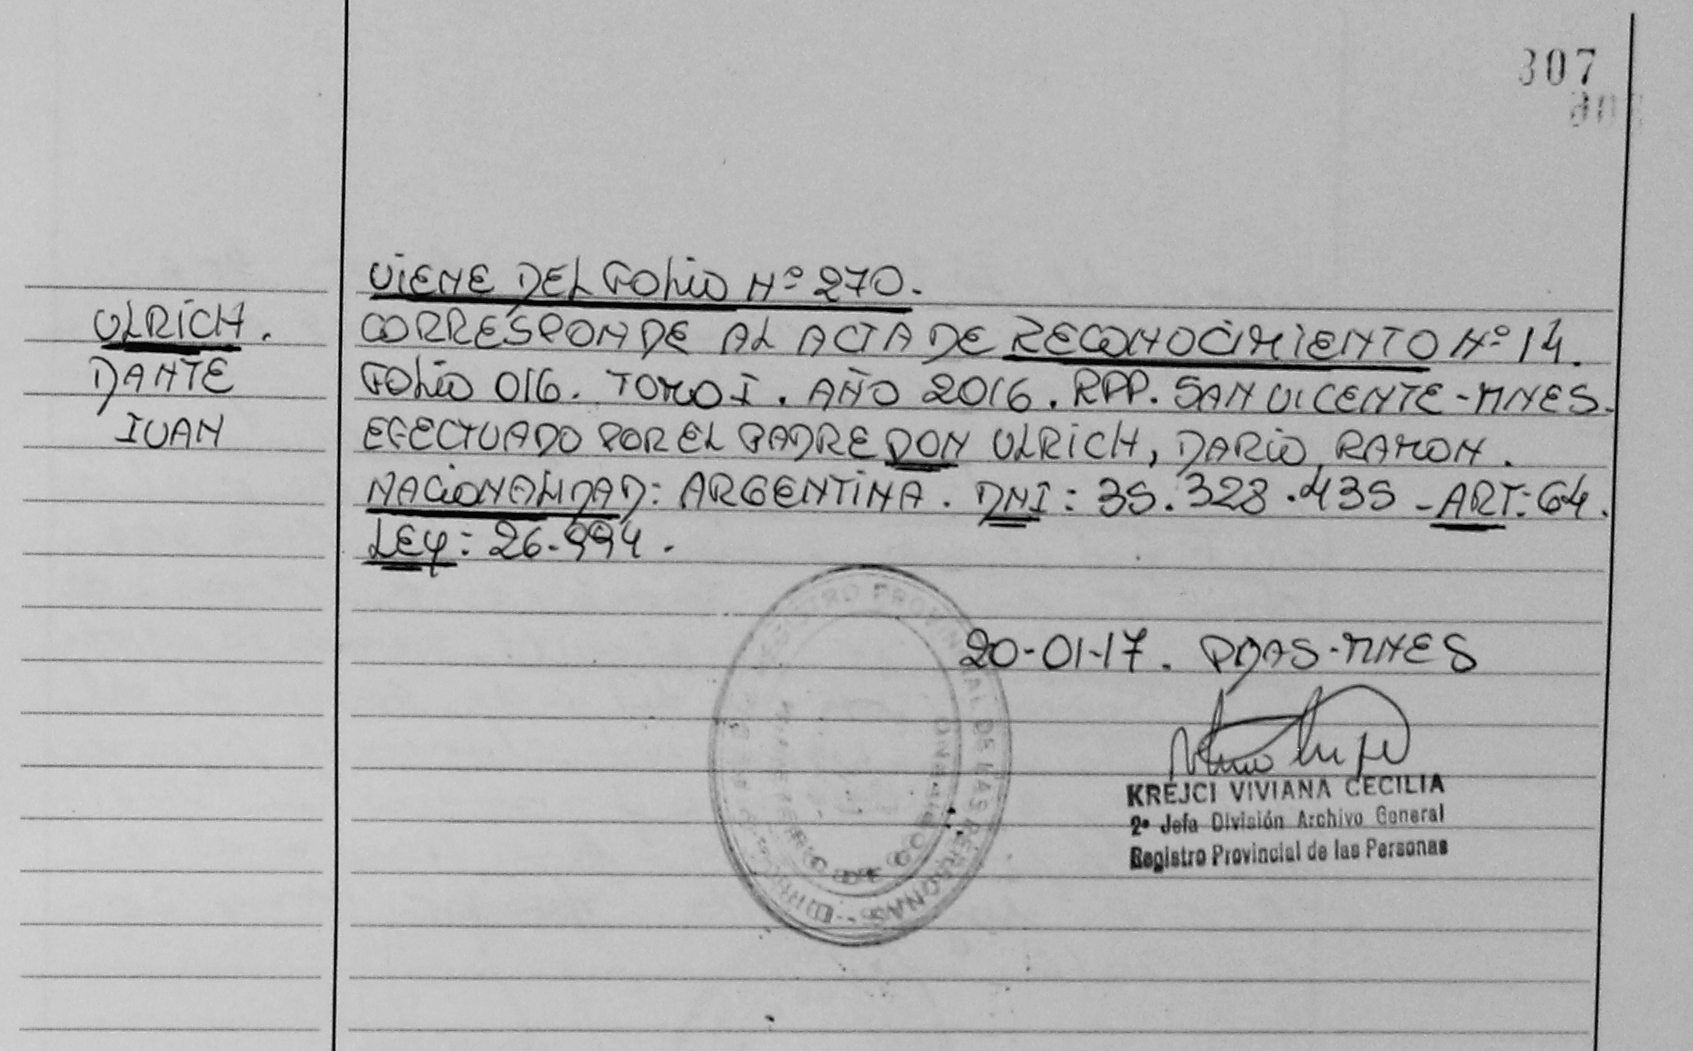 307
VIENE DEL FOLIO Nº 270.
ULRICH.
DANTE
IVAN
CORRESPONDE AL ACTA DE RECONOCIMIENTO Nº 14.
FOLIO 016. TOMO I. AÑO 2016. RPP. SAN VICENTE-MNES.
EFECTUADO POR EL PADRE DON ULRICH, DARIO RAMON.
NACIONALIDAD: ARGENTINA. DNI: 35.328.435 - ART: 64.
LEY: 26.994.
20-01-17. PDAS-MNES
KREJCI VIVIANA CECILIA
2ª Jefa División Archivo General
Registro Provincial de las Personas
REGISTRO PROVINCIAL DE LAS PERSONAS